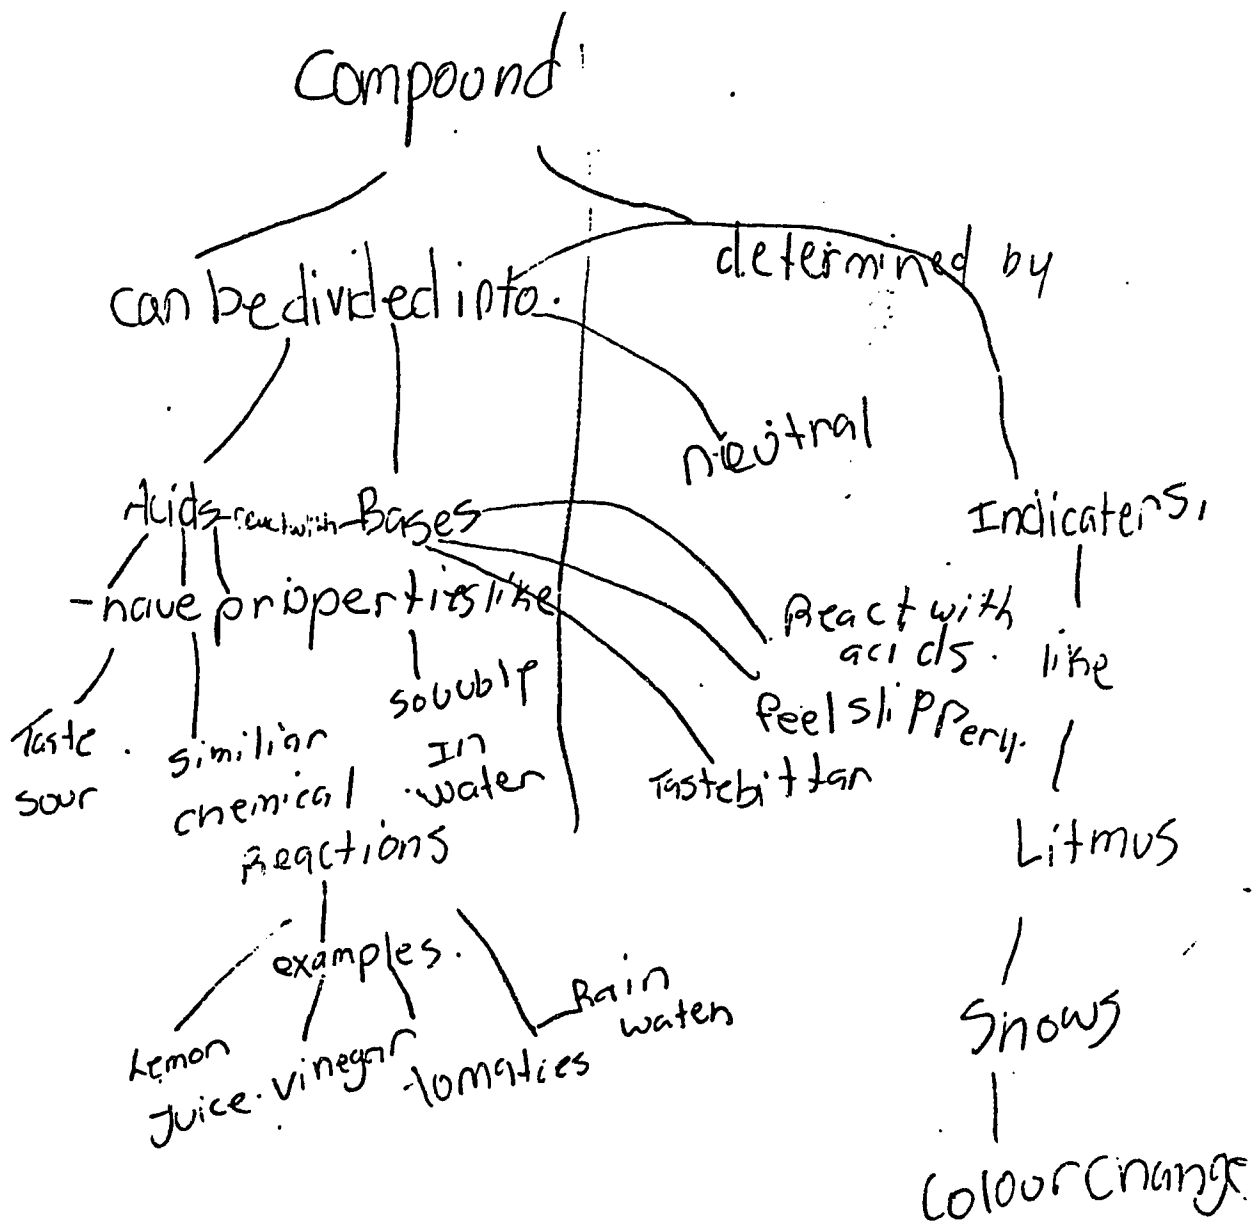 Compound
can be divided into.
determined by
neutral
Acids react with Bases
Indicaters,
have properties like
React with
acids.
like
feel slippery.
Taste bittar
Taste
sour
similiar
chemical
Reactions
soluble
In
water
Litmus
examples.
Lemon
Juice.
vinegar
tomaties
Rain
water
Shows
Colour Change